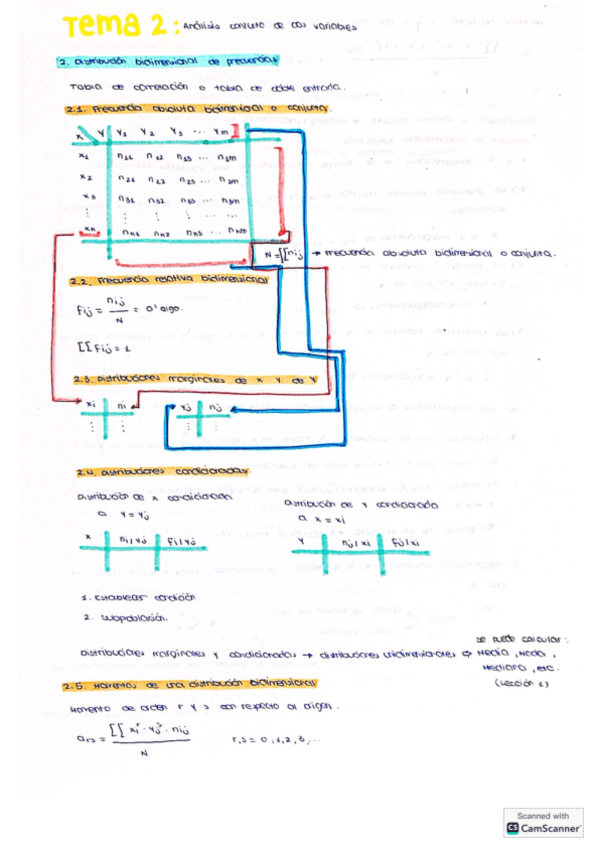 Tema 2: Análisis conjunto de dos variables
2. Distribución bidimensional de frecuencias
Tabla de correlación o tabla de doble entrada.
2.1. Frecuencia absoluta bidimensional o conjunta.
x y y1 y2 y3 ... ym
x1 n11 n12 n13 ... n1m
x2 n21 n22 n23 ... n2m
x3 n31 n32 n33 ... n3m
⋮ ⋮ ⋮ ⋮
xn nn1 nn2 nn3 ... nnm
N = [[nij → Frecuencia absoluta bidimensional o conjunta.
2.2. Frecuencia relativa bidimensional
fij = nij / N = 0'algo.
[[fij = 1
2.3. Distribuciones marginales de x y de y
xi ni yj nj
⋮ ⋮ ⋮ ⋮
2.4. Distribuciones condicionadas
Distribución de x condicionada
a y = yj
Distribución de y condicionada
a x = xi
x ni/yj fi/yj
y nj/xi fj/xi
1. Establecer condición
2. Subpoblación.
se puede calcular:
Distribuciones marginales y condicionadas → distribuciones unidimensionales ⇨ Media, Moda,
Mediana, etc.
(Lección 1)
2.5. Momentos de una distribución bidimensional
Momento de orden r y s con respecto al origen.
ars = [[ xi^r · yj^s · nij / N r,s = 0,1,2,3,...
Scanned with
CS CamScanner